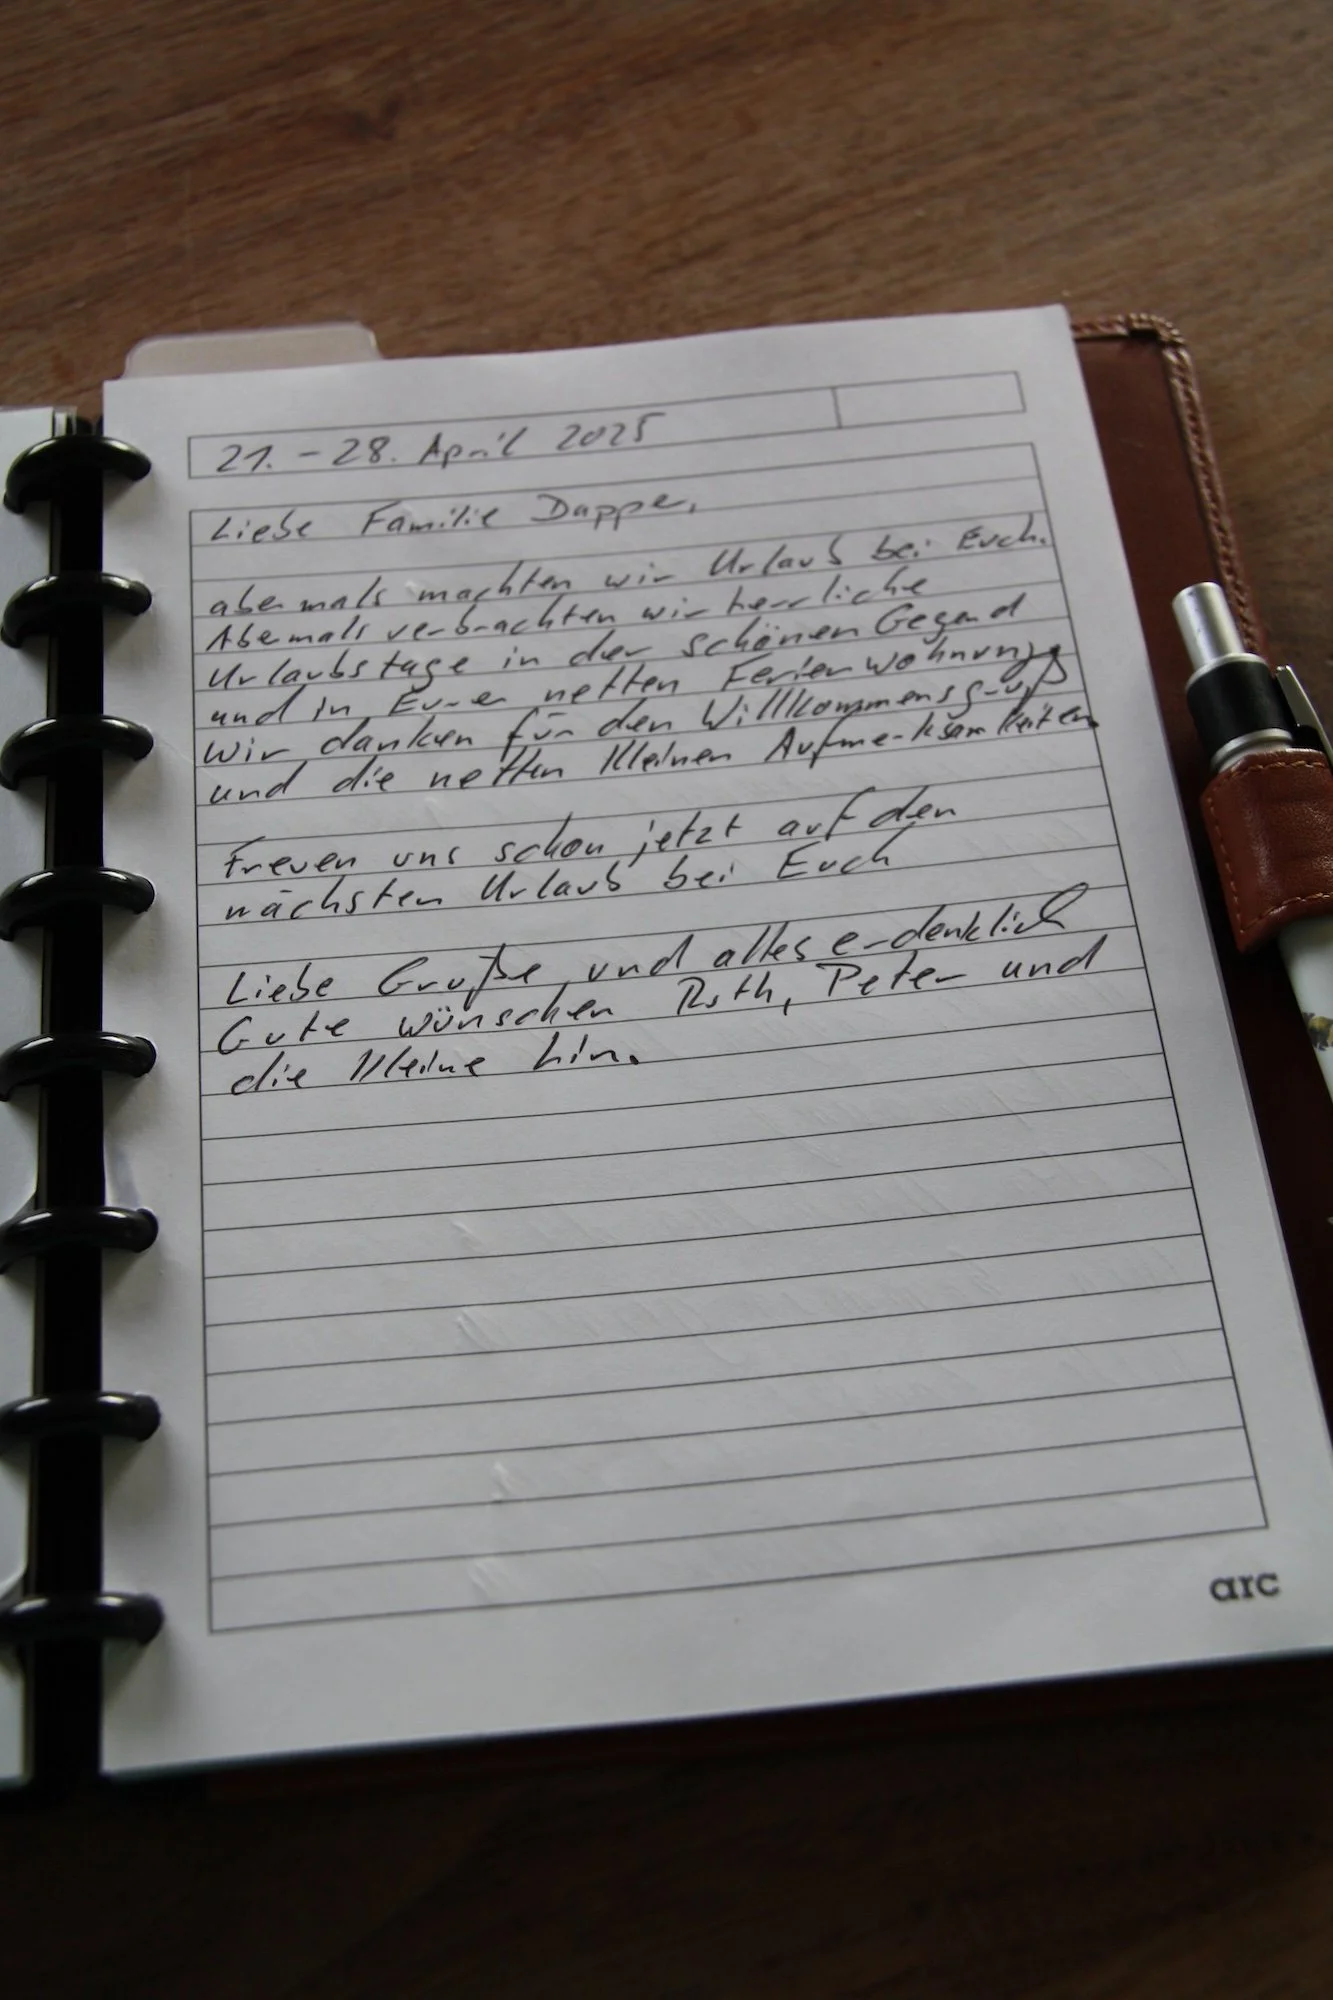 21. - 28. April 2025
Liebe Familie Dappe,
abermals machten wir Urlaub bei Euch.
Abermals verbrachten wir herrliche
Urlaubstage in der schönen Gegend
und in Eurer netten Ferienwohnung
Wir danken für den Willkommensgruß
und die netten kleinen Aufmerksamkeiten.
Freuen uns schon jetzt auf den
nächsten Urlaub bei Euch
Liebe Gruße und alles erdenklich
Gute wünschen Ruth, Peter und
die kleine
arc